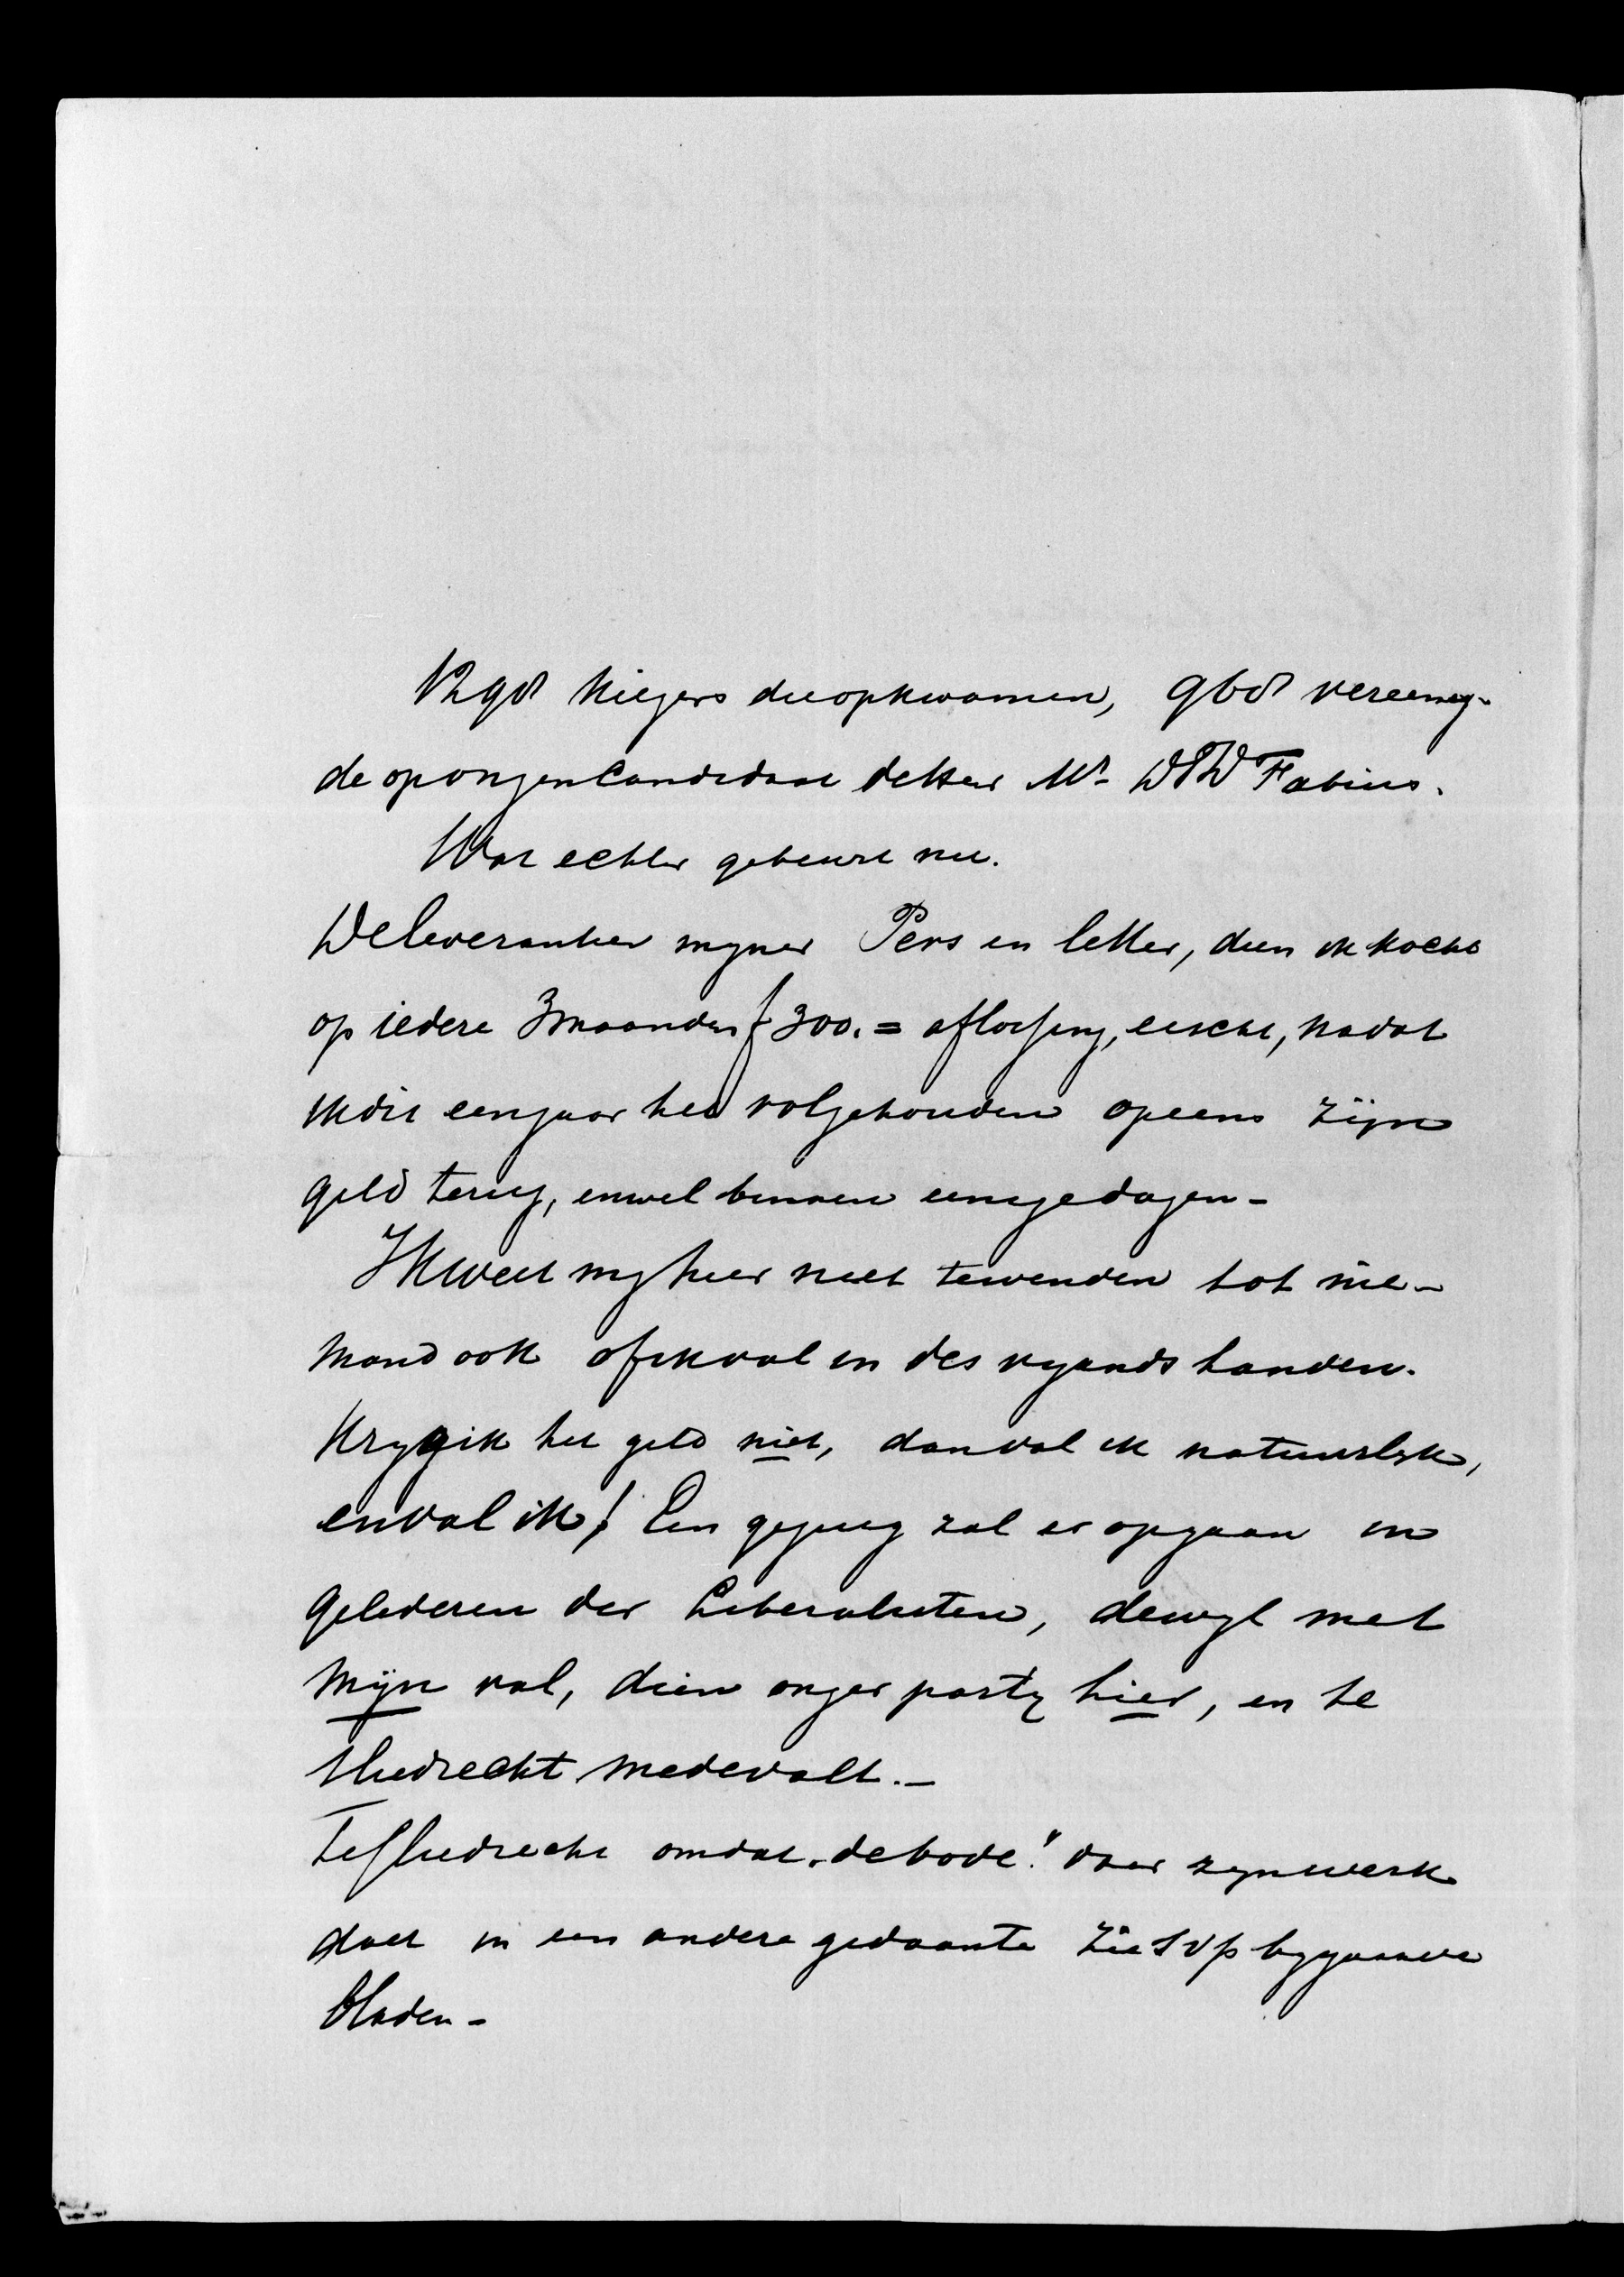 1298 kiezers die opkwamen, 968 vereenig-
de op onzen Candidaat de Heer Mr. DPD Fabius.
Wat echter gebeurt nu.
De leverancier mijner Pers en letter, dien ik kocht
op iedere 3 maanden f 300.= aflossing, eischt, nadat
ik dit een jaar heb volgehouden opeens zijn
geld terug, en wel binnen eenige dagen -
Ik weet mij hier niet te wenden tot nie-
mand ook of ik val in des vijands handen.
Krijg ik het geld niet, dan val ik natuurlijk,
en val ik! Een gejuig zal er opgaan in
gelederen der Liberalisten, dewijl met
mijn val, dien onzer partij hier, en te
Sliedrecht medevalt. -
Te Sliedrecht omdat "de bode" daar zijn werk
doet in een andere gedaante zie S v p bijgaande
bladen -